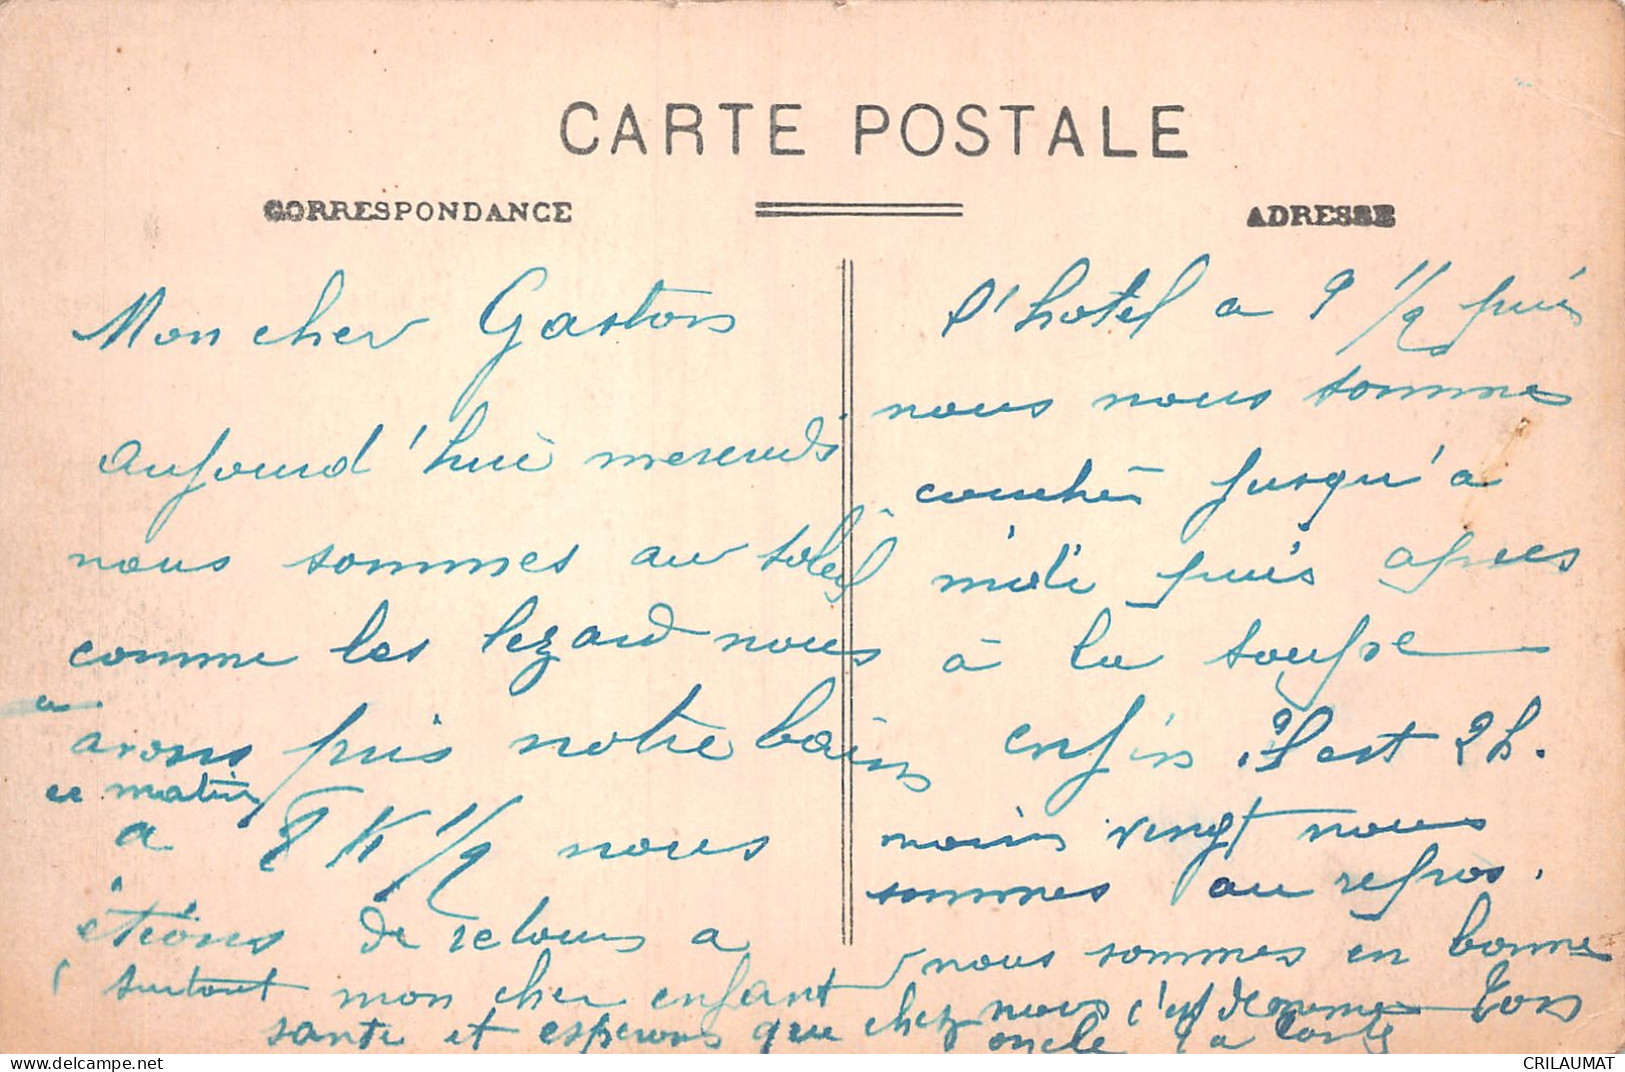 CARTE POSTALE
CORRESPONDANCE
ADRESSE
Mon cher Gaston
aujourd'hui
nous sommes au soleil
comme les lezard nous
avons pris notre bain
ce matin
a 8 h 1/2 nous
étions de retour a
l'hotel a 9 1/2 puis
nous nous sommes
couchés jusqu'a
midi puis apres
à la soupe
enfin il est 2 h.
moins vingt nous
sommes au repos.
nous sommes en bonne
surtout mon cher enfant
sante et esperons que chez nous c'est de meme Ton
oncle
CRILAUMAT